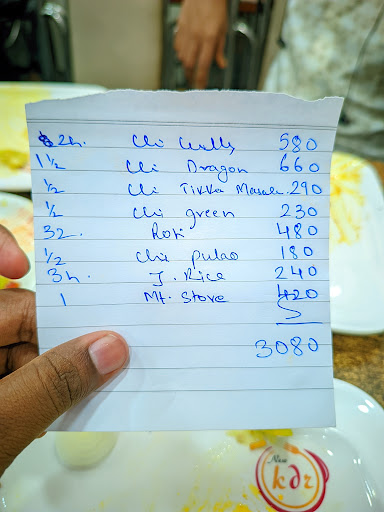 2h. Chi Chilly 580
1 1/2 Chi Dragon 660
1/2 Chi Tikka Masala. 290
1/2 Chi green 230
32. Roti 480
1/2 Chi Pulao 180
3h. J. Rice 240
1 Mt. Stove 420
3080
New
kdr